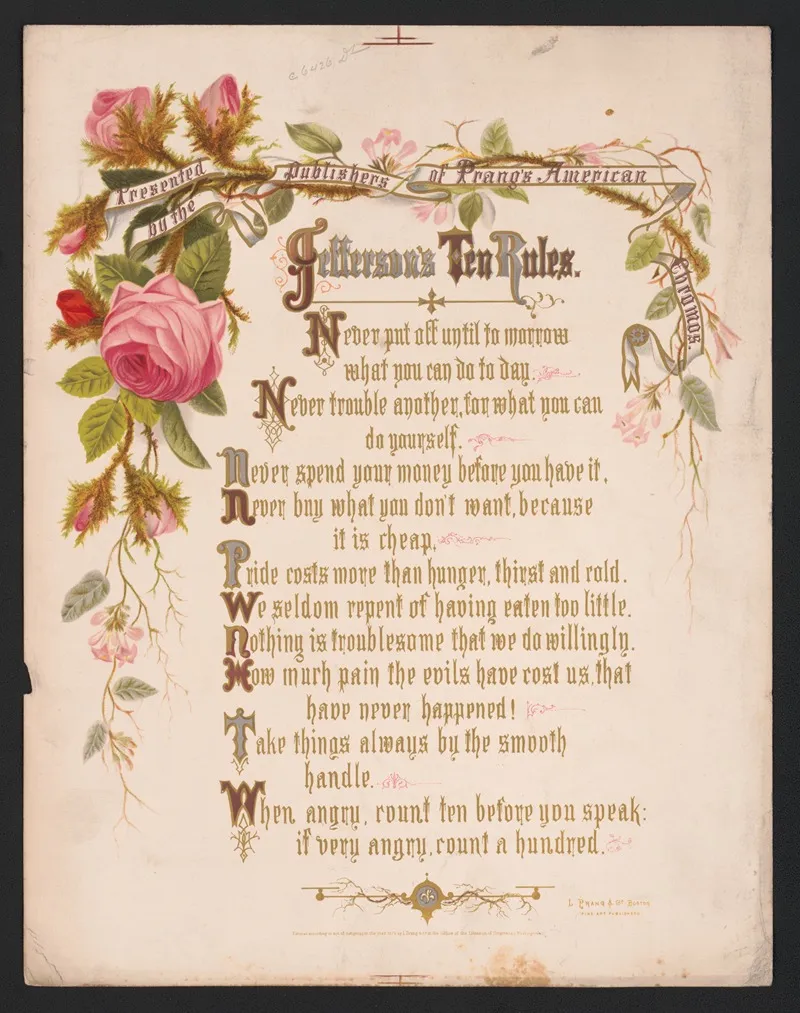 Presented
by the
Publishers
of Prang's American
Chromos.
Jefferson's Ten Rules.
Never put off until to morrow
what you can do to day.
Never trouble another, for what you can
do yourself.
Never spend your money before you have it,
Never buy what you don't want, because
it is cheap,
Pride costs more than hunger, thirst and cold.
We seldom repent of having eaten too little.
Nothing is troublesome that we do willingly.
How much pain the evils have cost us, that
have never happened!
Take things always by the smooth
handle.
When angry, count ten before you speak:
if very angry, count a hundred.
L. Prang & Co. Boston